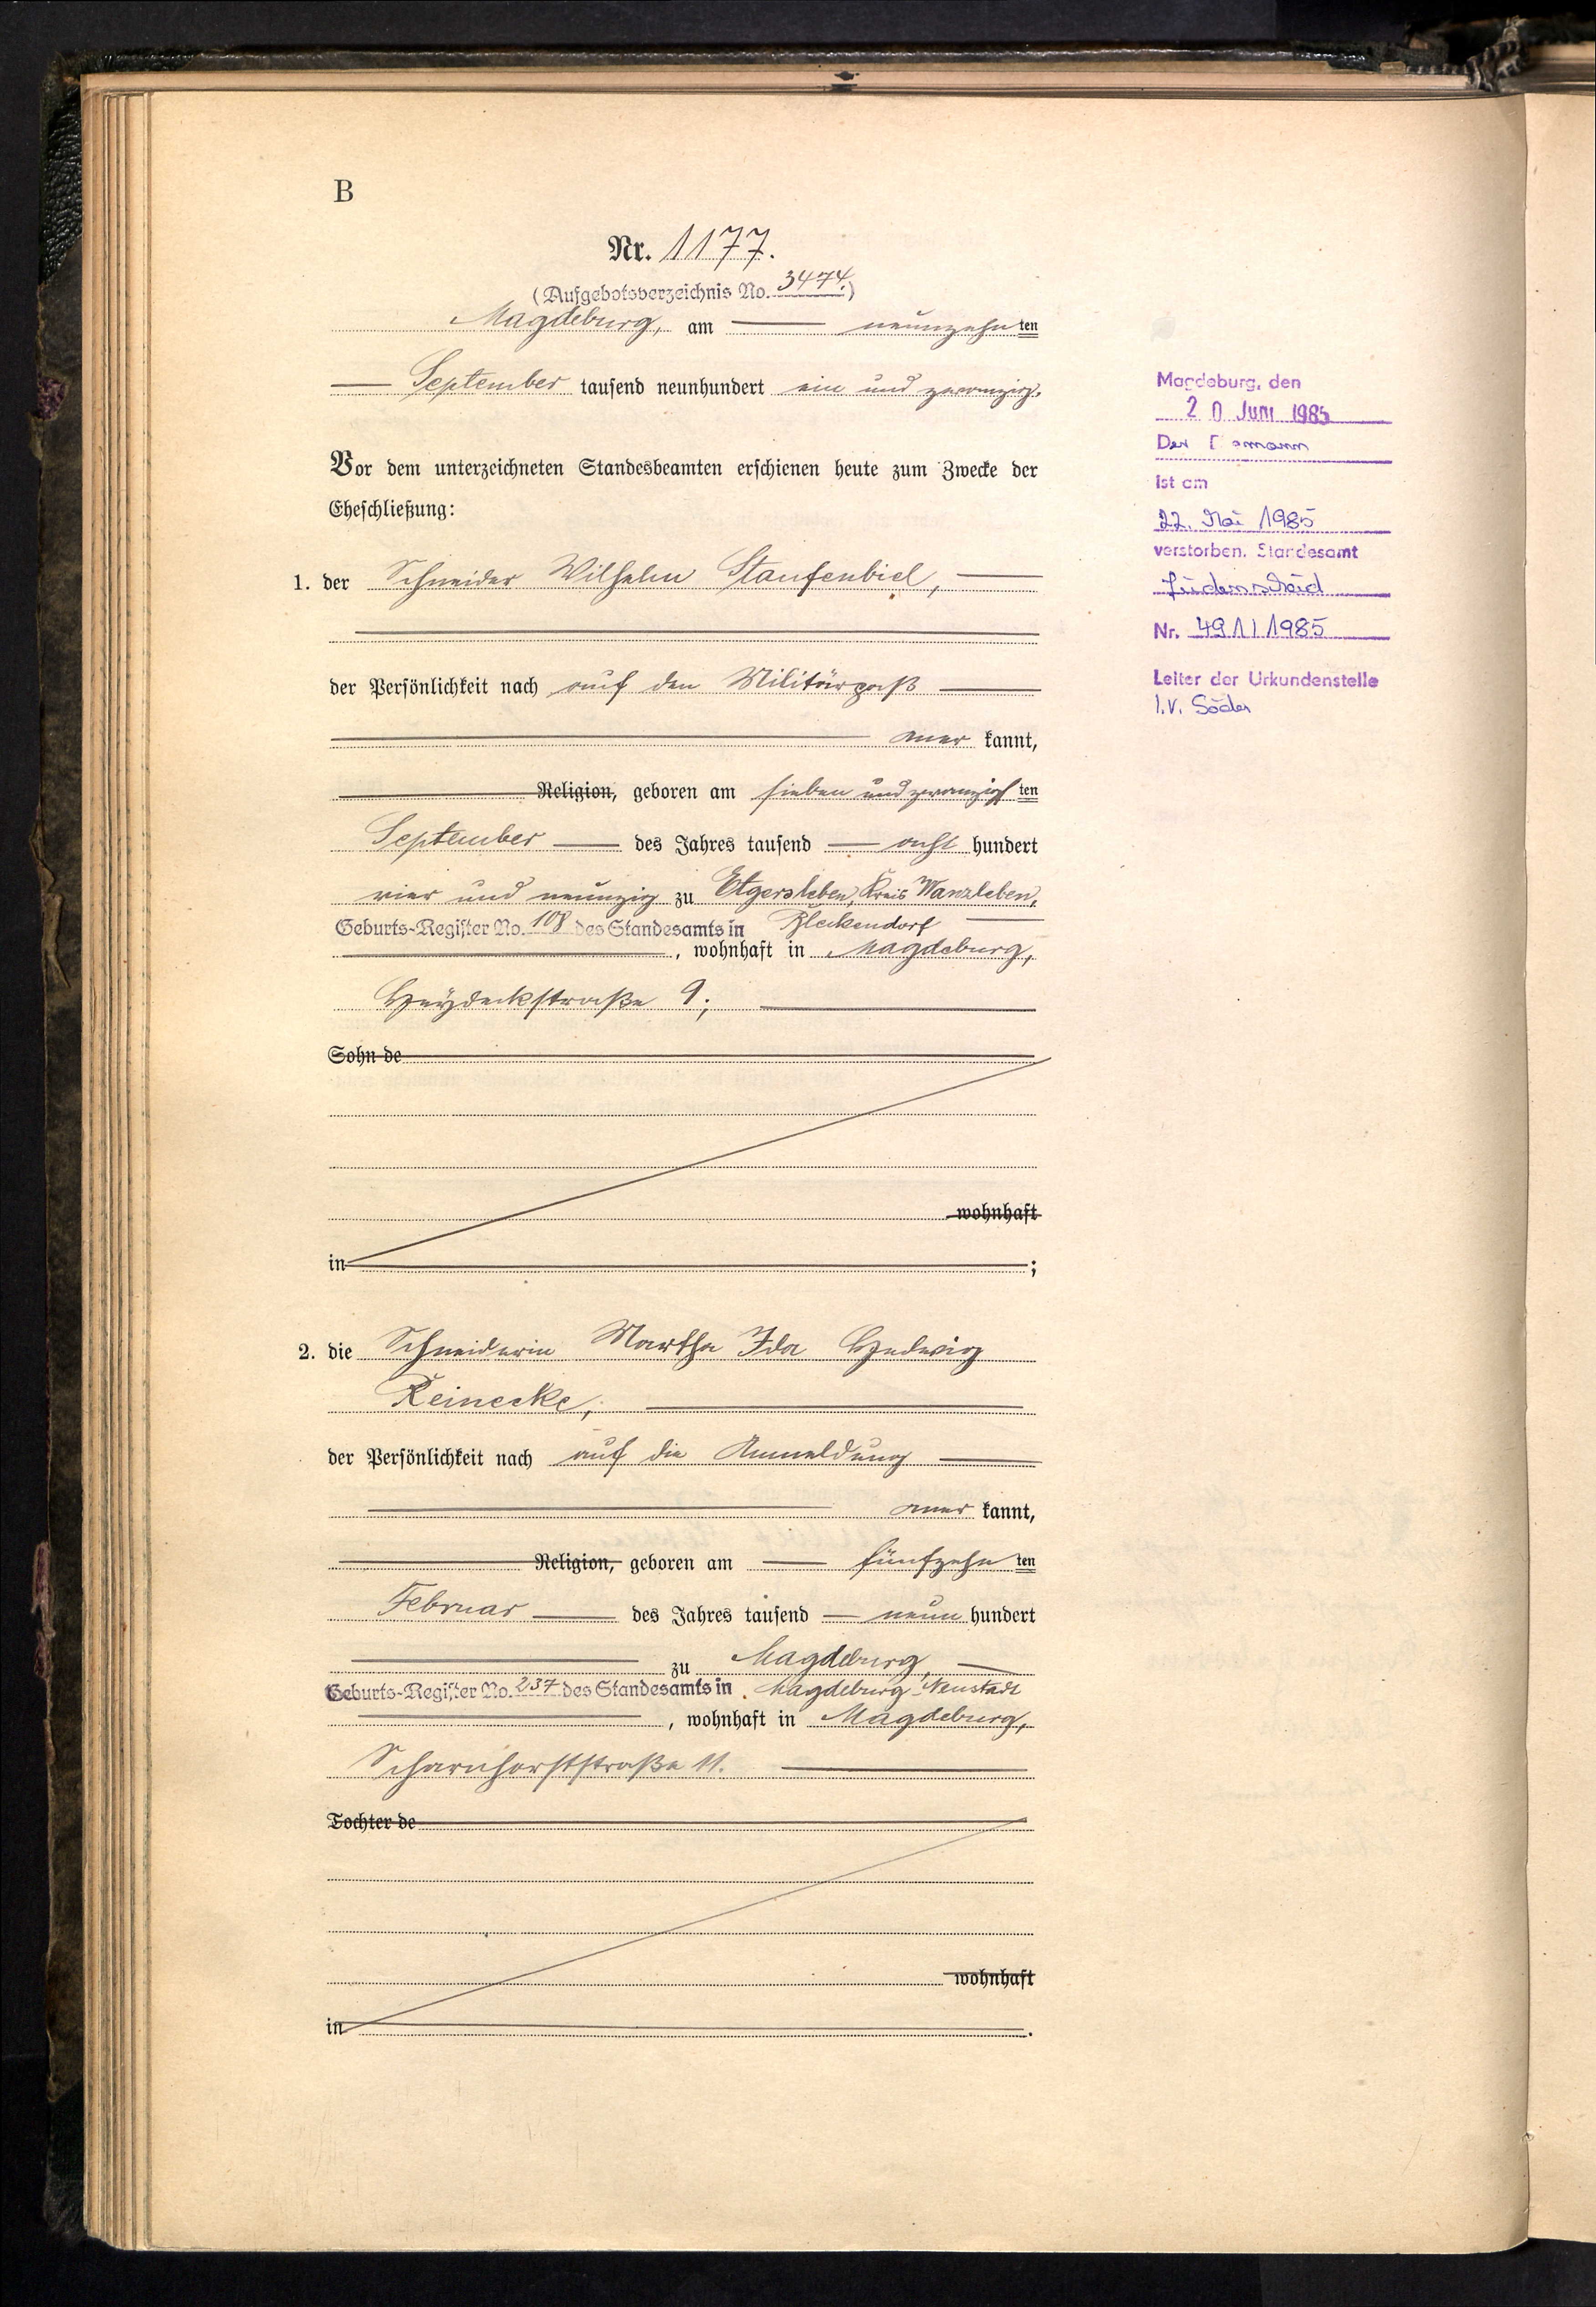 B
Nr. 1177.
(Aufgebotsverzeichnis No. 3474.)
Magdeburg, am neunzehnten
September tausend neunhundert ein und zwanzig.
Vor dem unterzeichneten Standesbeamten erschienen heute zum Zwecke der
Eheschließung:
1. der Schneider Wilhelm Staufenbiel,
der Persönlichkeit nach auf den Militärpaß
aner kannt,
Religion, geboren am sieben und zwanzigsten
September des Jahres tausend acht hundert
vier und neunzig zu Etgersleben, Kreis Wanzleben,
Geburts-Register No. 108 des Standesamts in Bleckendorf
, wohnhaft in Magdeburg,
Heydeckstraße 9;
Sohn de
wohnhaft
in ;
2. die Schneiderin Martha Ida Hedwig
Reinecke,
der Persönlichkeit nach auf die Anmeldung
aner kannt,
Religion, geboren am fünfzehnten
Februar des Jahres tausend neun hundert
zu Magdeburg,
Geburts-Register No. 237 des Standesamts in Magdeburg-Neustadt
, wohnhaft in Magdeburg,
Scharnhorststraße 11.
Tochter de
wohnhaft
in .
Magdeburg, den
20 Juni 1985
Der Ehemann
ist am
22. Mai 1985
verstorben. Standesamt
Lüdenscheid
Nr. 491/1985
Leiter der Urkundenstelle
I.V. Söder